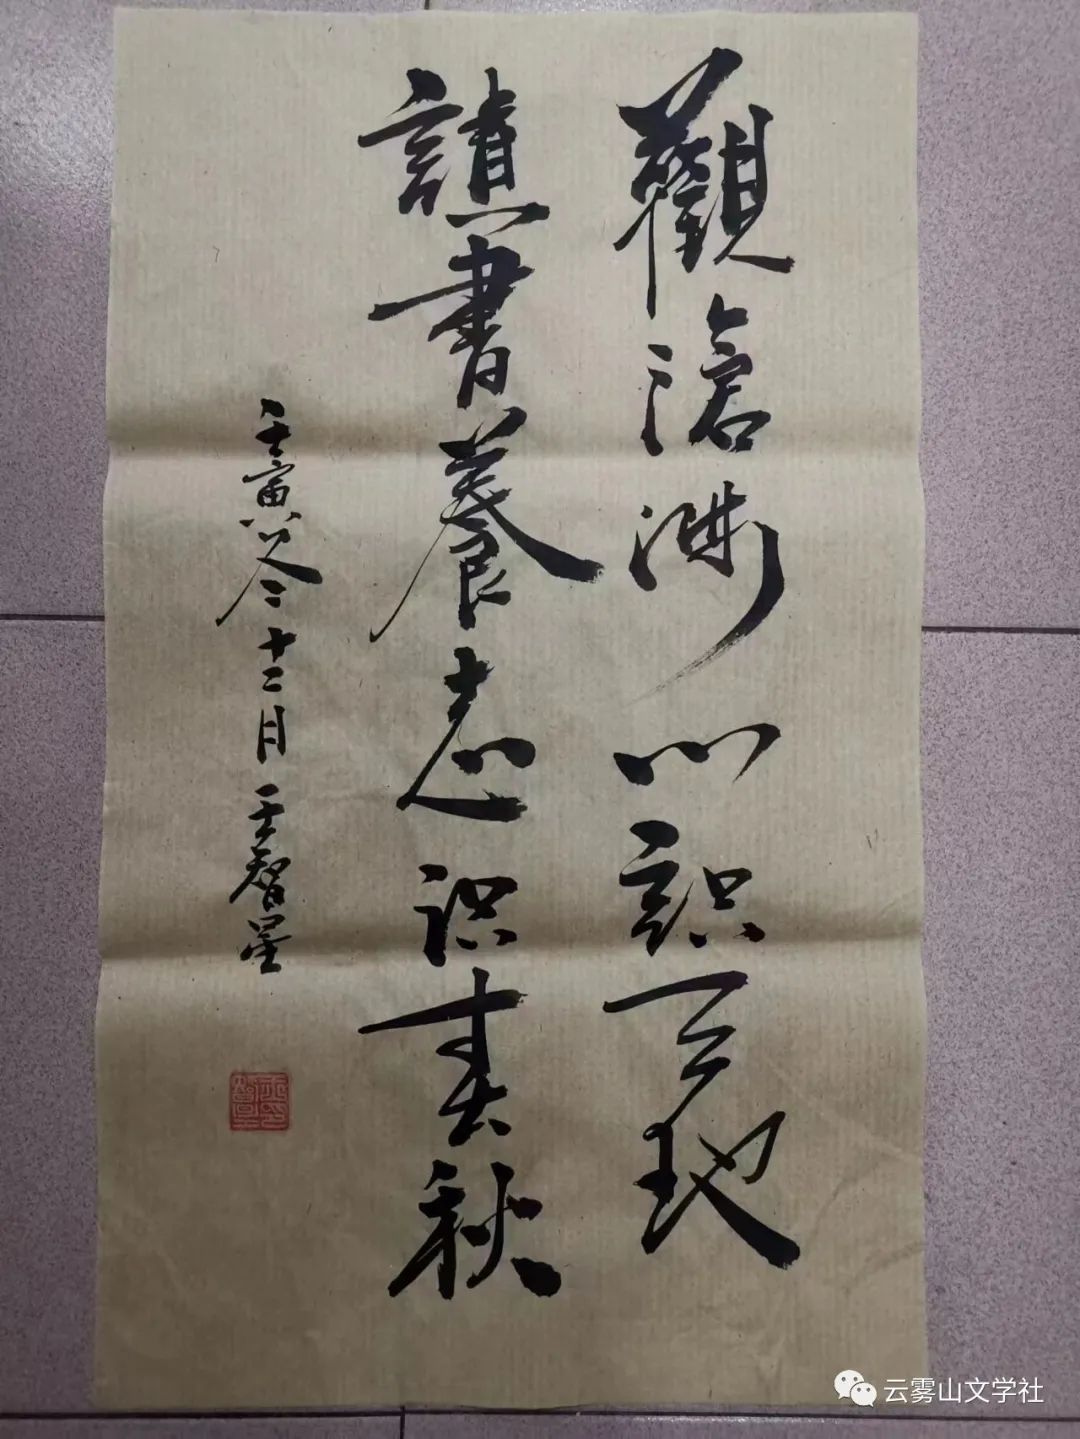 觀滄海心識天地
讀書養志识春秋
壬寅冬十二月王智星
云雾山文学社